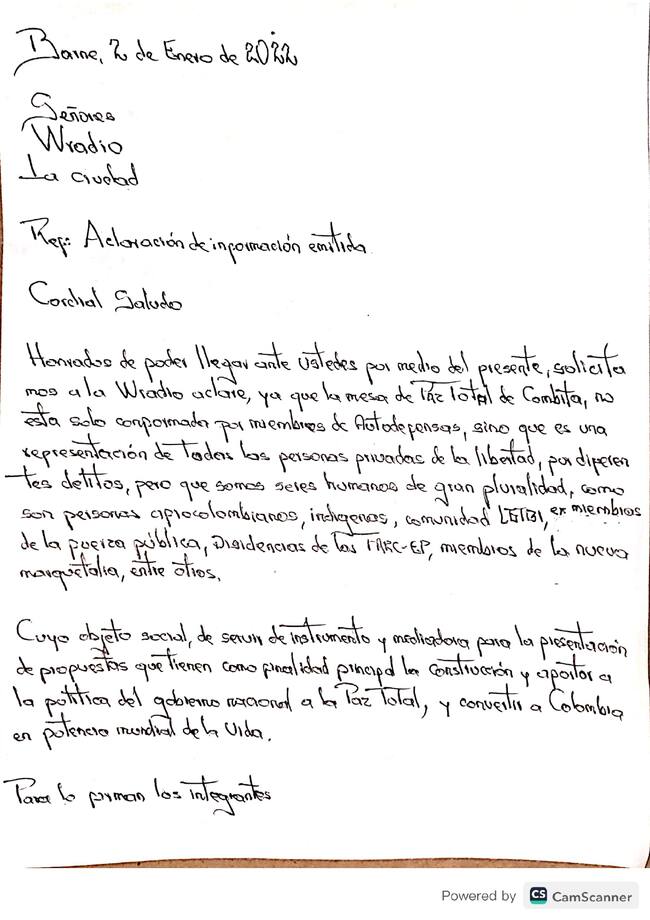 Barne, 2 de Enero de 2022
Señores
Wradio
La ciudad
Ref: Aclaración de información emitida
Cordial Saludo
Honrados de poder llegar ante ustedes por medio del presente, solicita
mos a la Wradio aclare, ya que la mesa de Paz Total de Combita, no
esta solo conformada por miembros de Autodefensas, sino que es una
representación de todas las personas privadas de la libertad, por diferen
tes delitos, pero que somos seres humanos de gran pluralidad, como
son personas afrocolombianos, indigenas, comunidad LGTBI, ex miembros
de la fuerza pública, Disidencias de las FARC-EP, miembros de la nueva
marquetalia, entre otros.
Cuyo objeto social, de servir de instrumento y mediadora para la presentación
de propuestas que tienen como finalidad principal la construcción y aportar a
la política del gobierno nacional a la Paz Total, y convertir a Colombia
en potencia mundial de la Vida.
Para lo firman los integrantes
Powered by CS CamScanner